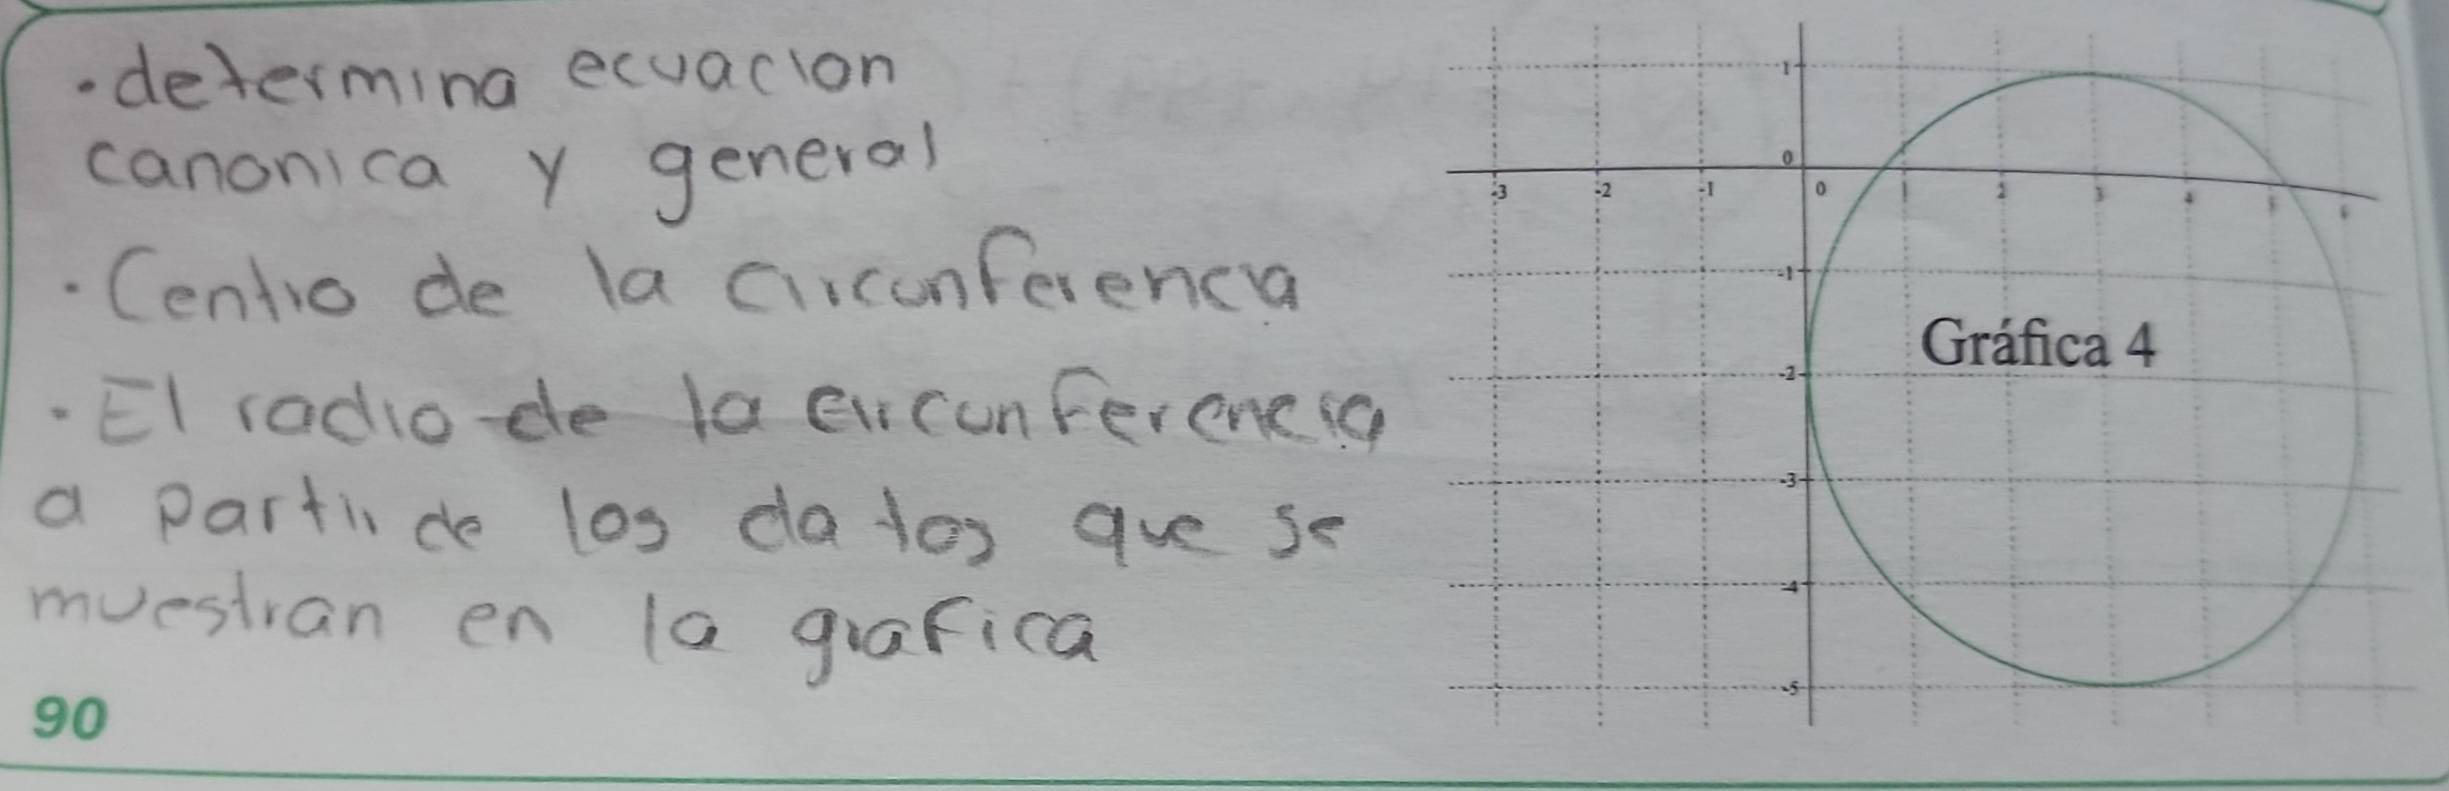 · determina ecuacion
canonica y general
· Centro de la circunferencia
· El radio de la circunferencia
a partir de los datos que se
muestran en la grafica
90
1
0
-3 -2 -1 0 1 2 3 4 5 6
-1
Gráfica 4
-2
-3
-4
-5